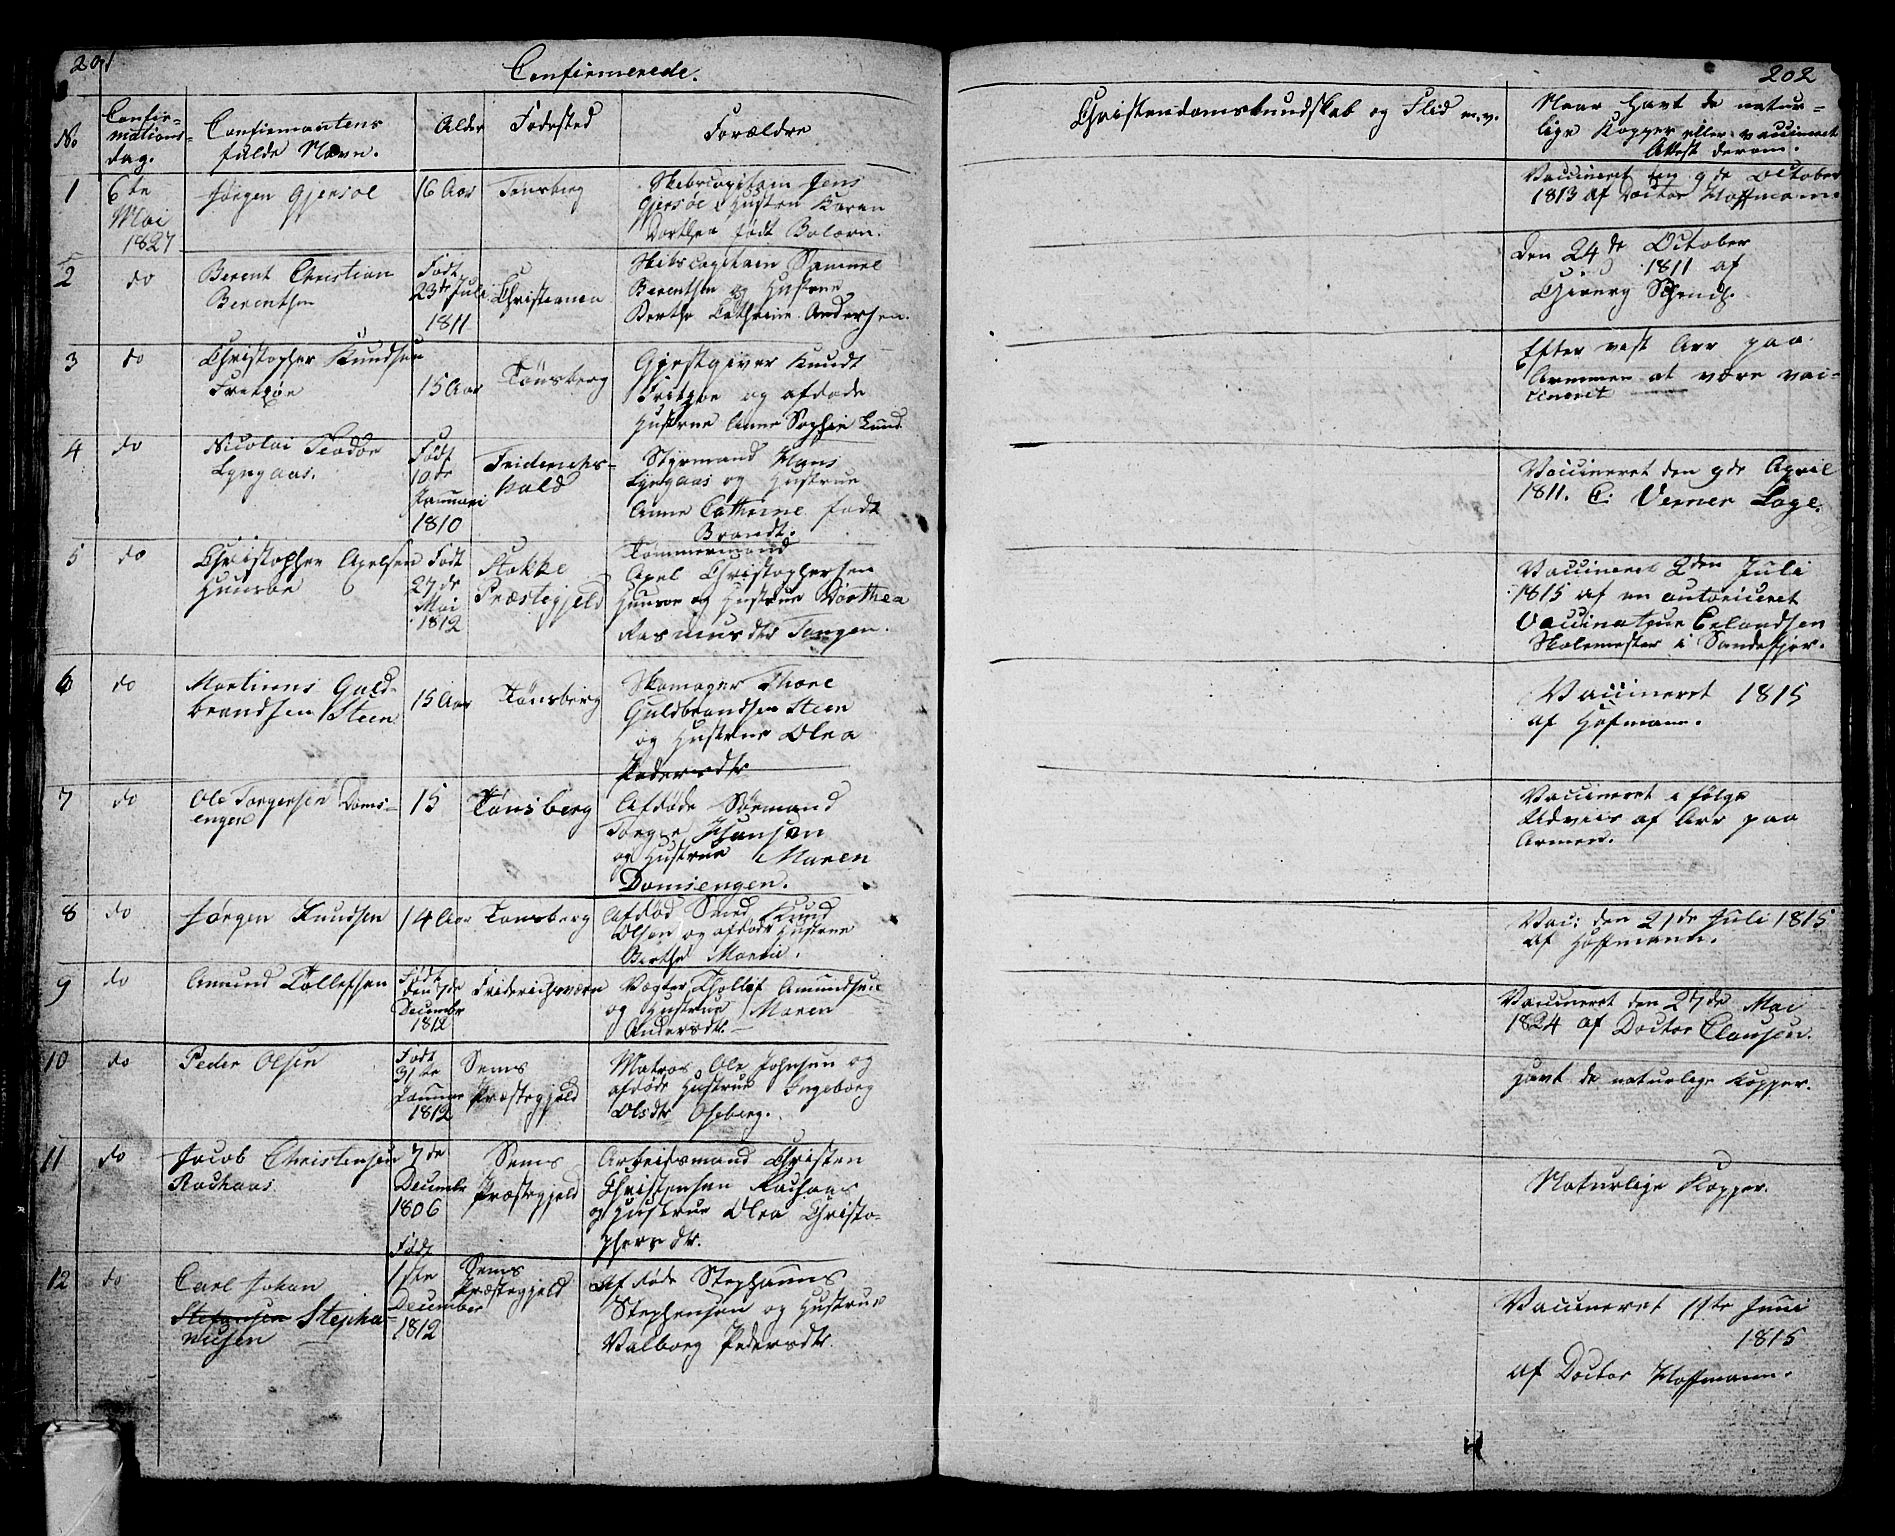 201
Confirmerede.
No.
Confir-
mations-
dag.
Confirmantens
fulde Navn.
Alder
Fødested
Forældre
1
6te
Mai
1827
Jørgen Gjersøe
16 Aar
Tønsberg
Skibscapitain Jens
Gjersøe & Hustru Karen
Dorthea født Bolærn.
2
do
Berent Christian
Berentsen
Født
23de Juli
1811
Christiania
Skibscapitain Samuel
Berentsen og Hustrue
Berthe Cathrine Andersen.
3
do
Christopher Knudsen
Fretzøe
15 Aar
Tønsberg
Gjestgiver Knudt
Fritzøe og afdøde
Hustrue Anne Sophie Lund
4
do
Nicolai Teodor
Lyngaas.
Født
10de
Januari
1810
Friderichs-
hald
Styrmand Hans
Lyngaas og Hustrue
Anne Cathrine født
Brandt.
5
do
Christopher Axelsen
Hunsøe
Født
27de
Mai
1812
Stokke
Præstegjeld
Tømmermand
Axel Christophersen
Hunsøe og Hustrue Dorthea
Rasmusdtr Tangen.
6
do
Martinus Guld-
brandsen Steen
15 Aar
Tønsberg
Skomager Thore
Guldbrandsen Steen
og Hustrue Olea
Pedersdtr
7
do
Ole Torgersen Doms-
engen
15
Tønsberg
Afdøde Sømand
Torger Hansen
og Hustrue Maren
Domsengen.
8
do
Jørgen Knudsen
14 Aar
Tønsberg
Afdød Smed Knud
Olsen og afdøde Hustrue
Berthe Maria.
9
do
Amund Tollefsen
Født
den 7de
Decembr
1812
Friderichsværn
Vægter Thollef Amundsen
og Hustrue Maren
Andersdtr.
10
do
Peder Olsen
Født
31te
Januar
1812
Sems
Præstegjeld
Matros Ole Johnsen og
afdøde Hustrue Ingeborg
Olsdtr Oseberg.
11
do
Jacob Christensen
Rachaas
7de
Decembr
1806
Sems
Præstegjeld
Arbeidsmand Christen
Christensen Rachaas
og Hustrue Olea Christo-
phersdtr.
12
do
Carl Johan
Stefansen Stepha-
niusen
Født
1ste
December
1812
Sems
Præstegjeld
Afdøde Stephanus
Stephensen og Hustrue
Valborg Pedersdtr.
202
Christendomskundskab og Flid m.v.
Naar havt de natur-
lige Kopper eller vaccineret
Attest derom.
Vaccineret den 9de October
1813 af Doctor Hoffmann.
Den 24de October
1811 af
Chirurg
Efter vest Arr paa
Armmen at være vac-
cineret
Vaccineret den 9de April
1811. C: Verner Lage.
Vaccineret 2den Juli
1815 af en autoriceret
Vaccinateur Erlandsen
Skolemester i Sandefjor.
Vaccineret 1815
af Hofmann.
Vaccineret i følge
Udviis af Arr paa
Armen.
Vac: den 21de Juli 1815
af Hoffmann.
Vaccineret den 27de Mai
1824 af Doctor Clausen.
Havt de naturlige Kopper.
Naturlige Kopper.
Vaccineret 11te Juni
1815
af Doctor Hoffmann.